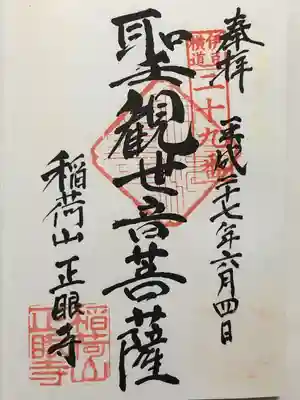 奉拝
平成二十七年六月四日
伊豆
横道
二十九番
聖観世音菩薩
稲荷山 正眼寺
稲荷山
正眼寺